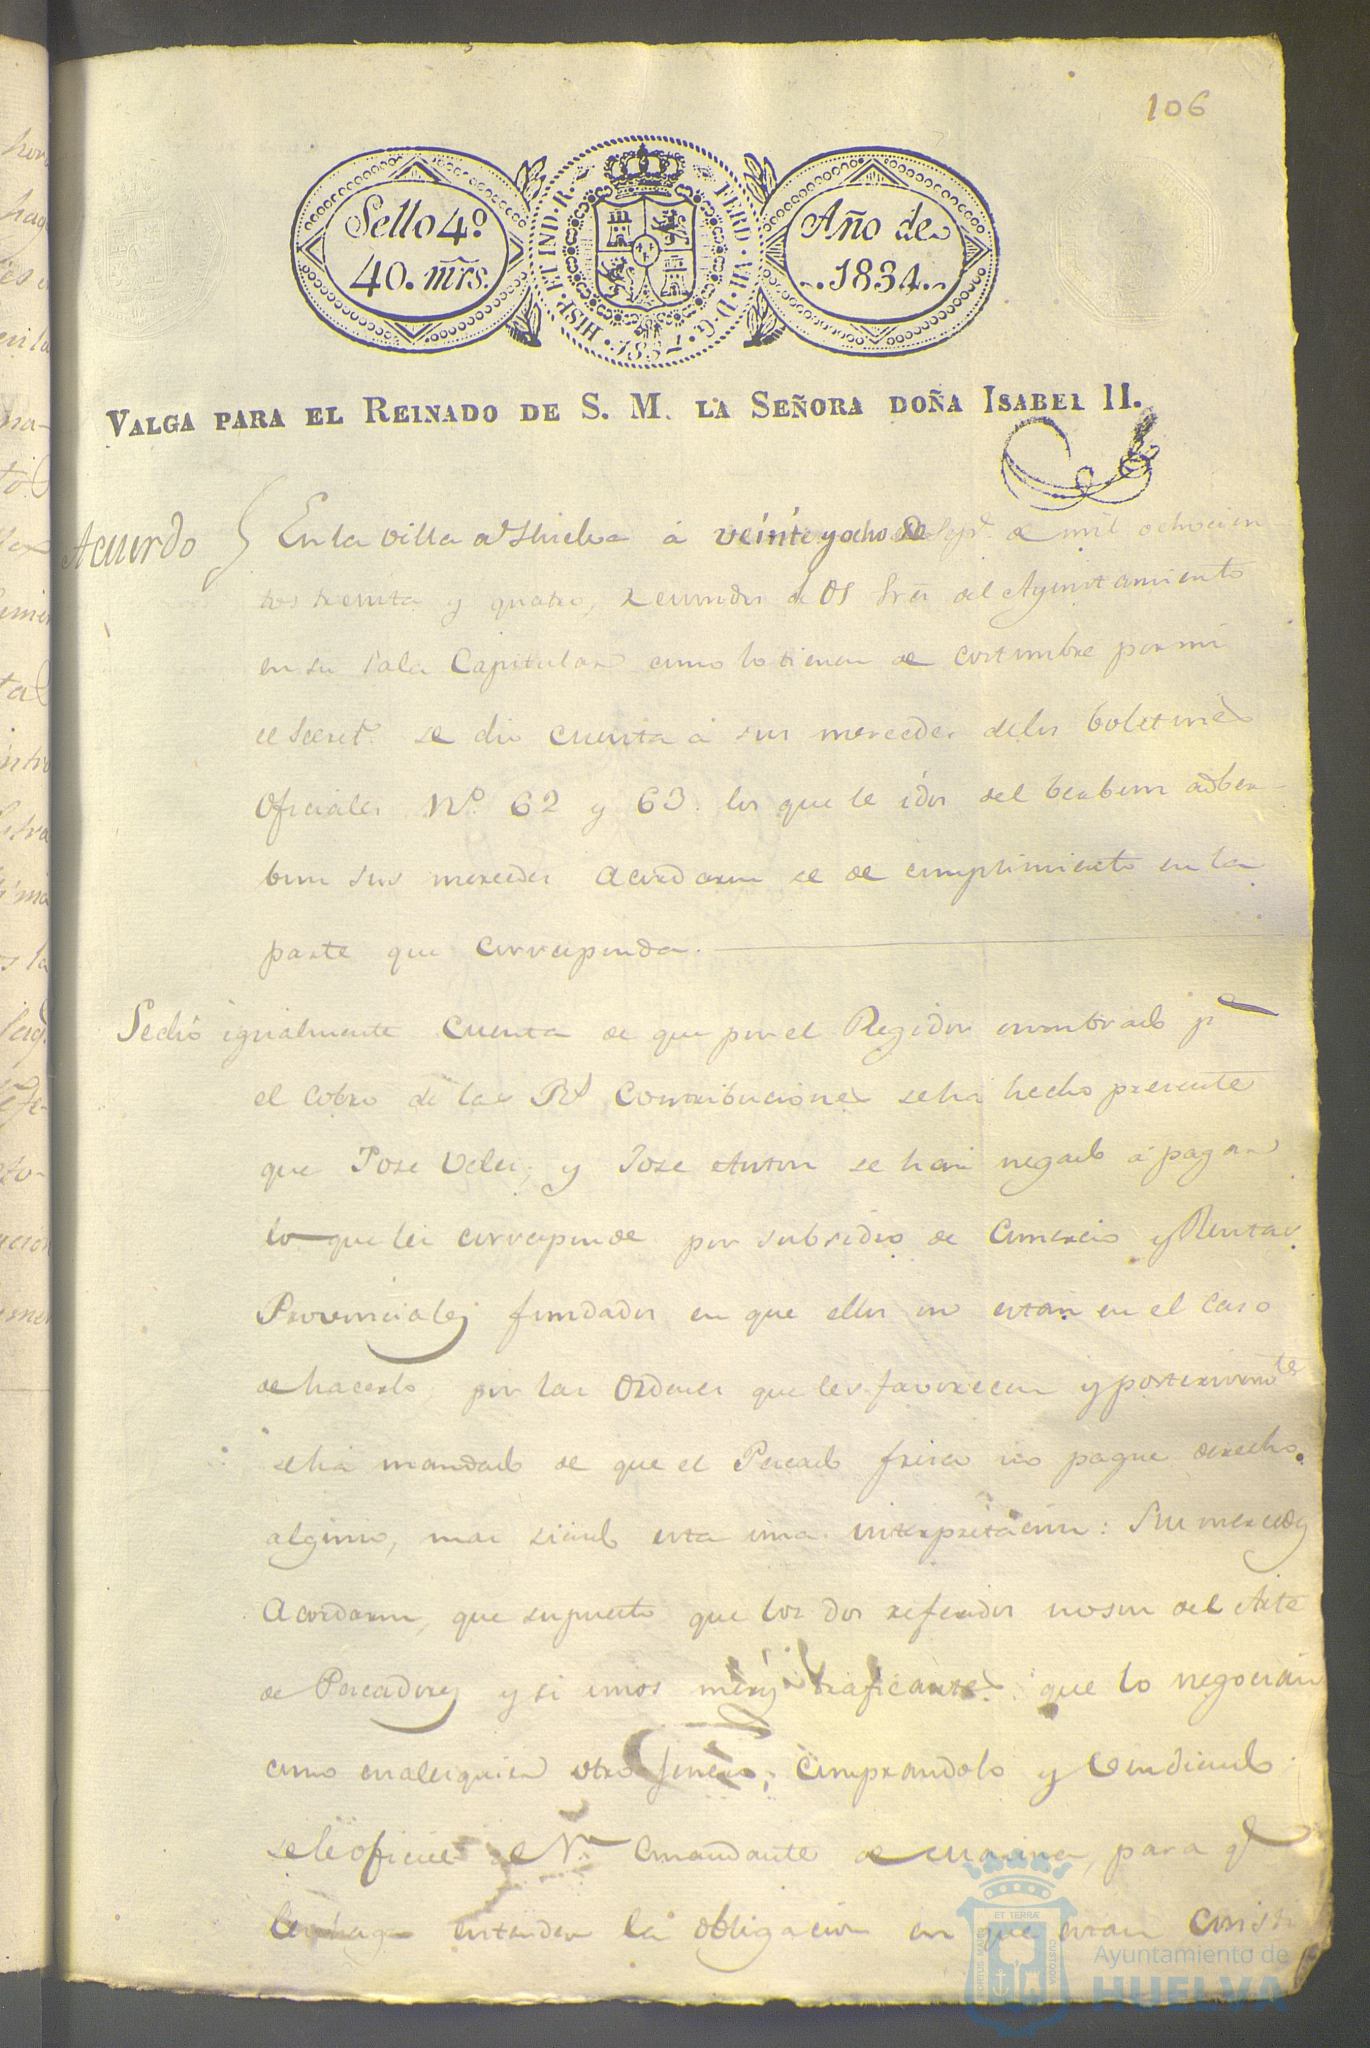 106
Sello 4º
40. mrs.
HISP. ET IND. R.
FERD. VII. D. G.
1834.
Año de
1834.
VALGA PARA EL REINADO DE S. M. LA SEÑORA DOÑA ISABEL II.
Acuerdo
En la villa de Huelva á veinte y ocho de Sepe. de mil ochocien-
tos treinta y quatro, Reunidos los Sres. del Ayuntamiento
en su Sala Capitular como lo tienen de costumbre por mi
el Secret.º se dio cuenta á sus mercedes delos boletines
Oficiales Nº 62 y 63. los que leidos del berbum adber-
bum sus mercedes Acordaron se de cumplimiento en la
parte que corresponda.
Se dió igualmente cuenta de que por el Regidor nombrado pª
el Cobro de las Rs Contribuciones se ha hecho presente
que Jose Velez, y Jose Anton se han negado á pagar
lo que les corresponde por subsidio de Comercio y Rentas
Provinciales fundados en que ellos no estan en el caso
de hacerlo por las Ordenes que les favorecen y posteriormte
se ha mandado de que el Pescado fresco no pague derecho
alguno, mas siendo esta una interpretacion: Sus mercedes
Acordaron, que supuesto que los dos referidos no son del Arte
de Pescadores y si unos meros traficantes que lo negocian
como cualesquiera otro genero, comprandolo y vendiendo
se le oficie al Sr. Comandante de marina, para q.e
les haga entender la obligacion en que estan consti
ET TERRÆ
PORTUS MARIS
CUSTODIA
Ayuntamiento de
HUELVA